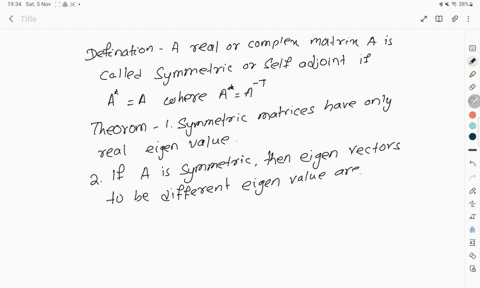 19:34 Sat, 5 Nov
38%
Title
Defination - A real or complex matrix A is
called Symmetric or Self adjoint if
A* = A where A* = A^-T
Theorom - 1. Symmetric matrices have only
real eigen value.
2. If A is symmetric, then eigen vectors
to be different eigen value are